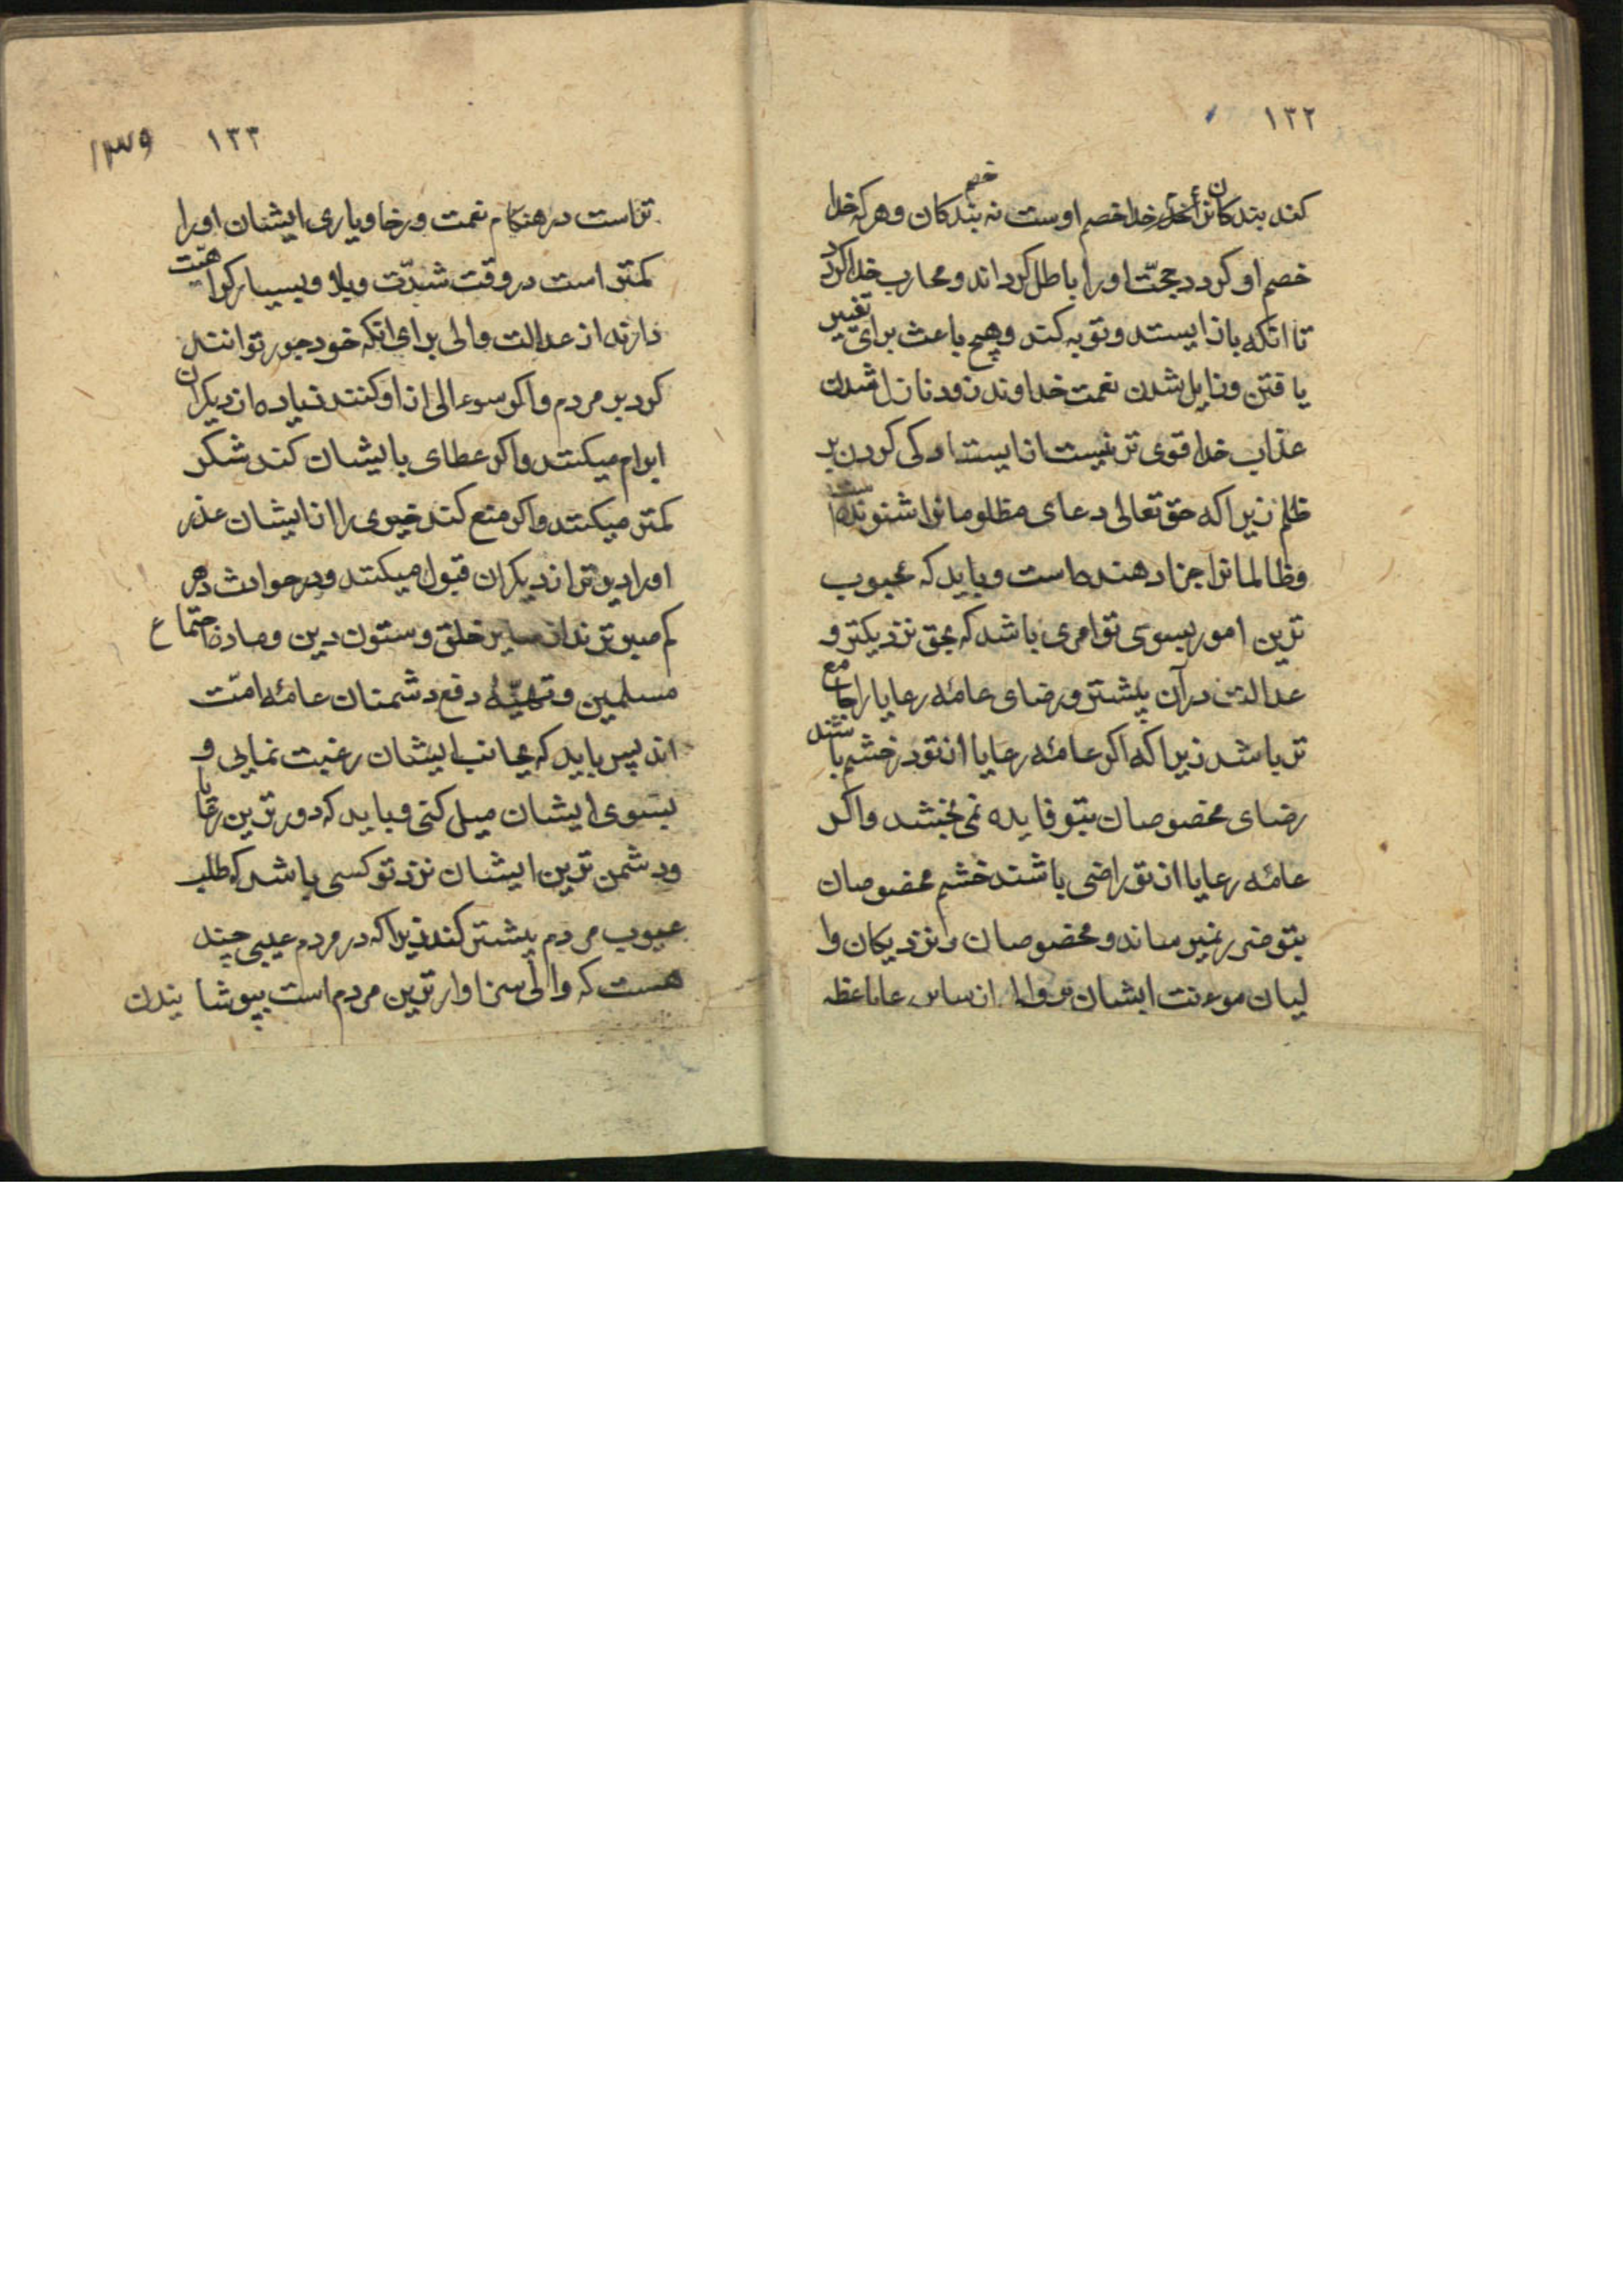 ۱۳۲
کند بندکانرا خدا خصم اوست نه بندکان و هر که خدا خصم
خصم او کردد حجّت او را باطل کرداند و محارب خدا کردد
تا انکه باز ایستد و توبه کند و هیچ باعث برای تغییر
یافتن و زایل شدن نعمت خداوند و زود نازل شدن
عذاب خدا قوی تر نیست از ایستادکی کردن بر
ظلم زیرا که حق تعالی دعای مظلومانرا شنونده است
و ظالمانرا جزا دهنده است و باید که محبوب
ترین امور بسوی تو امری باشد که بحق نزدیکتر و
عدالت در آن بیشتر و رضای عامّه رعایا را جامع
تر باشد زیرا که اکر عامّه رعایا از تو در خشم باشند
رضای مخصوصان بتو فایده نمی بخشد و اکر
عامّه رعایا از تو راضی باشند خشم مخصوصان
بتو ضرر نمیرساند و مخصوصان و نزدیکان وا
لیان موءنت ایشان بر والی از سایر رعایا عظیم
۱۳۳ ۱۳۹
تر است در هنکام نعمت و رخا و یاری ایشان او را
کمتر است در وقت شدّت و بلا و بسیار کراهیت
دارند از عدالت والی برای انکه خود جور توانند
کرد بر مردم و اکر سوءالی از او کنند زیاده از دیکران
ابرام میکنند و اکر عطای بایشان کند شکر
کمتر میکنند و اکر منع کند خیری را از ایشان عذر
او را دیرتر از دیکران قبول میکنند و در حوادث دهر
کم صبر ترند از سایر خلق و ستون دین و ماده اجتماع
مسلمین و تهیّهٔ دفع دشمنان عامّه امّت
اند پس باید که بجانب ایشان رغبت نمایی و
بسوی ایشان میل کنی و باید که دور ترین رعایا
و دشمن ترین ایشان نزد تو کسی باشد که طلب
عیوب مردم بیشتر کند زیرا که در مردم عیبی چند
هست که والی سزاوار ترین مردم است بپوشا نیدن